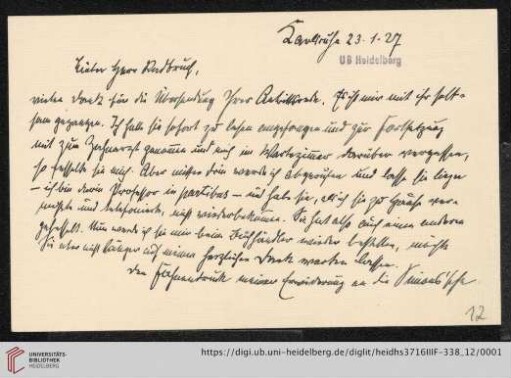 Karlsruhe 23.1.27
UB Heidelberg
Lieber Herr Radbruch,
vielen Dank für die Übersendung Ihrer Antrittsrede. Es ist mir mit ihr selt-
sam gegangen. Ich hatte sie sofort zu lesen angefangen und zur Fortsetzung
mit zum Zahnarzt genommen und auch im Wartezimmer darüber vergessen,
so fesselte sie mich. Aber mitten drin werde ich abgerufen und lasse sie liegen
– ich bin darin Professor in partibus – und habe sie, als ich sie zu Hause ver-
misste und telefonierte, nicht wiederbekommen. Sie hat also auch einen anderen
gefesselt. Nun werde ich sie mir beim Buchhändler wieder bestellen, möchte
Sie aber nicht länger auf meinen herzlichen Dank warten lassen.
Den Fahnendruck meiner Erwiderung an die
12
UNIVERSITÄTS-
BIBLIOTHEK
HEIDELBERG
https://digi.ub.uni-heidelberg.de/diglit/heidhs3716IIIF-338_12/0001